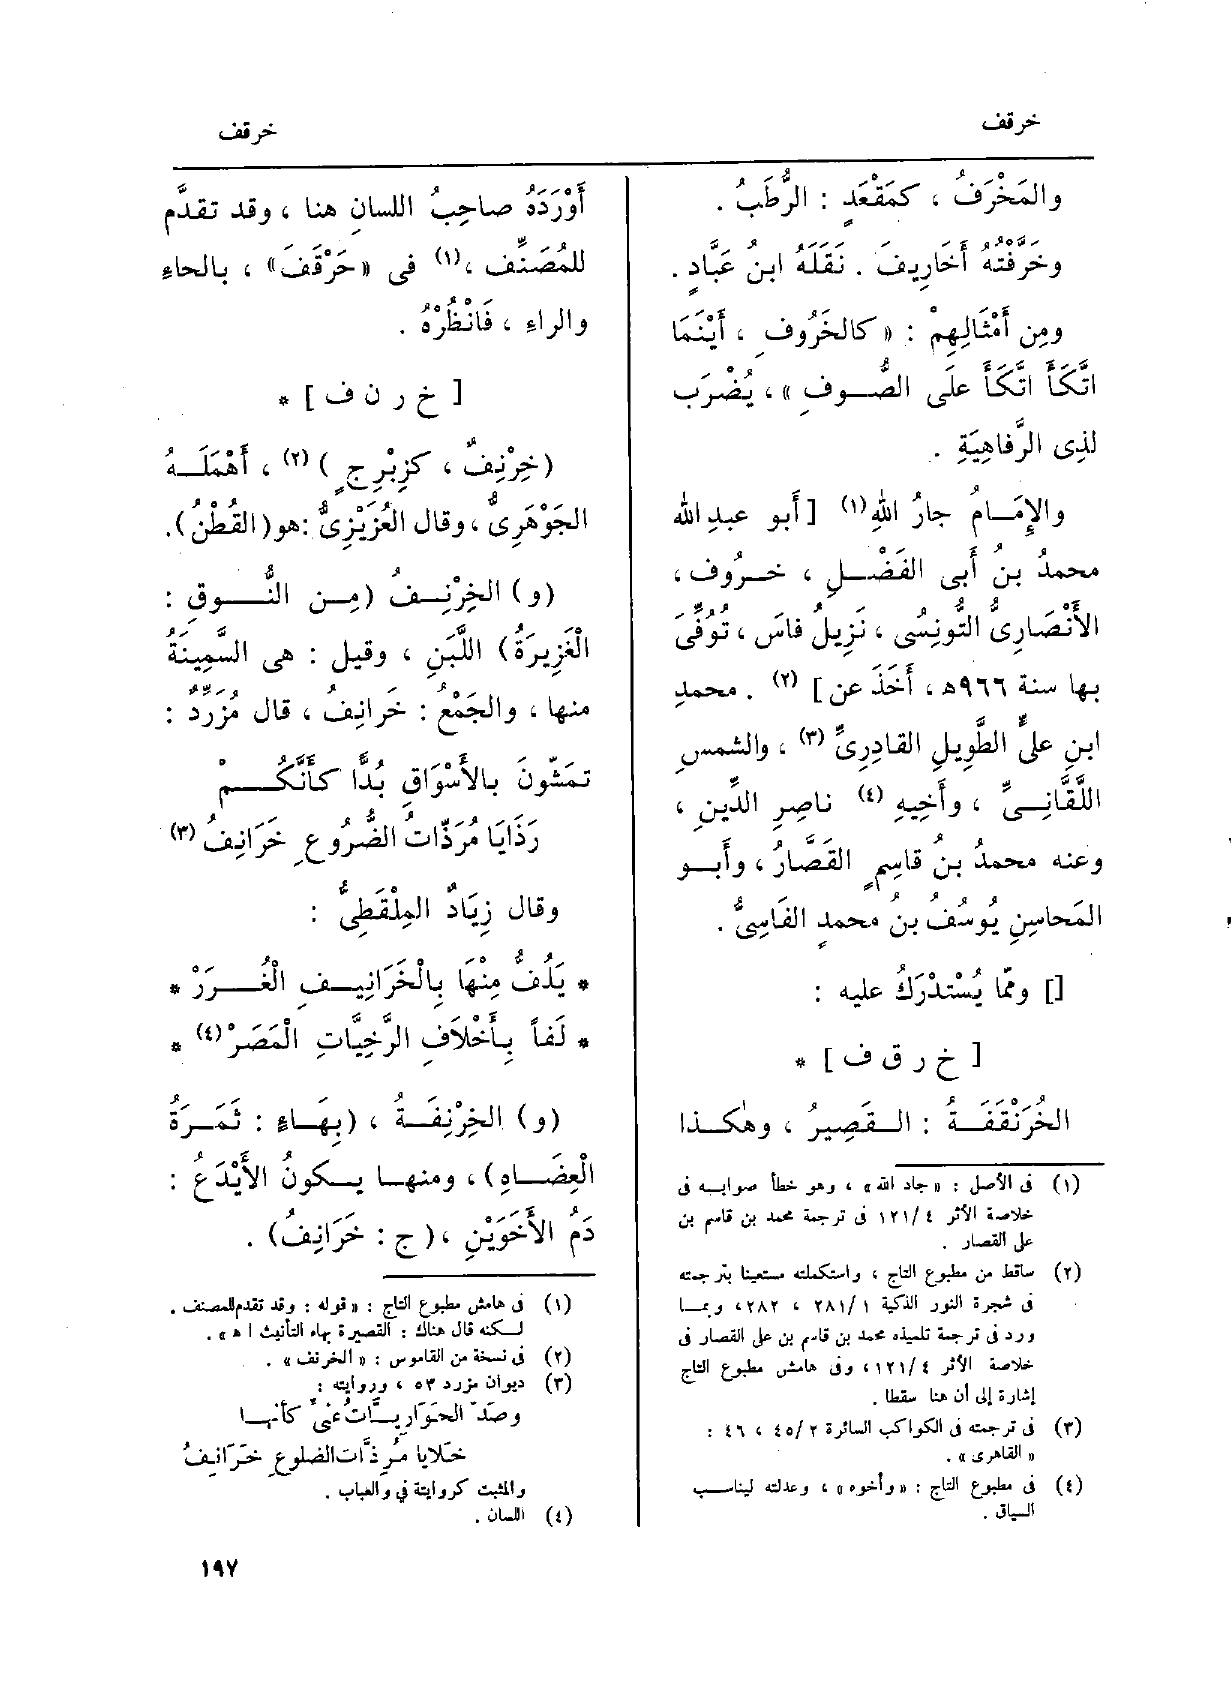 خرقف
خرقف
والمَخْرَفُ ، كمَقْعَدٍ : الرُّطَبُ .
وخَرَّفْتُهُ أَخَارِيفَ . نَقَلَهُ ابنُ عَبَّادٍ .
ومِن أَمْثَالِهِمْ : « كالخَرُوفِ ، أَيْنَمَا
اتَّكَأَ اتَّكَأَ علَى الصُّوفِ » ، يُضْرَب
لذِى الرَّفاهِيَةِ .
والإِمَامُ جارُ اللهِ(١) [ أَبو عبدِ الله
محمدُ بنُ أَبى الفَضْلِ ، خروف ،
الأَنْصَارِىُّ التُّونِسُى ، نَزِيلُ فاسَ ، تُوُفِّىَ
بها سنة ٩٦٦ه ، أَخَذَ عن ] (٢) . محمدِ
ابنِ علىٍّ الطَّوِيلِ القادِرِىِّ (٣) ، والشمسِ
اللَّقَّانِىِّ ، وأَخِيهِ (٤) ناصِرِ الدِّينِ ،
وعنه محمدُ بنُ قاسِمٍ القَصَّارُ ، وأَبو
المَحاسِنِ يُوسُفُ بنُ محمدٍ الفَاسِىُّ .
[] وممّا يُسْتَدْرَكُ عليه :
[ خ ر ق ف ] *
الخُرَنْقَفَةُ : القَصِيرُ ، وهٰكذا
(١) فى الأصل : «جاد الله» ، وهو خطأ صوابه فى
خلاصة الأثر ٤/١٢١ فى ترجمة محمد بن قاسم بن
على القصار .
(٢) ساقط من مطبوع التاج ، واستكملته مستعينا بترجمته
فى شجرة النور الذكية ١/٢٨١ ، ٢٨٢ ، وبما
ورد فى ترجمة تلميذه محمد بن قاسم بن على القصار فى
خلاصة الأثر ٤/١٢١ ، وفى هامش مطبوع التاج
إشارة إلى أن هنا سقطا .
(٣) فى ترجمته فى الكواكب السائرة ٢/٤٥ ، ٤٦ :
« القاهرى » .
(٤) فى مطبوع التاج : «وأخوه» ، وعدلته ليناسب
السياق .
أَوْرَدَهُ صاحِبُ اللسانِ هنا ، وقد تقدَّم
للمُصَنِّفِ ،(١) فى «حَرْقَفَ» ، بالحاءِ
والراءِ ، فَانْظُرْهُ .
[ خ ر ن ف ] *
(خِرْنِفٌ ، كزِبْرِجٍ ) (٢) ، أَهْمَلَهُ
الجَوْهَرِىُّ ، وقال العُزَيْزِىُّ : هو (القُطْنُ).
(و) الخِرْنِفُ (مِن النُّوقِ :
الْغَزِيرَةُ) اللَّبَنِ ، وقيل : هى السَّمِينَةُ
منها ، والجَمْعُ : خَرانِفُ ، قال مُزَرِّدٌ :
تمَشّونَ بالأَسْوَاقِ بُدًّا كأَنَّكُمْ
رَذَايَا مُرَذّاتُ الضُّرُوعِ خَرَانِفُ (٣)
وقال زِيَادٌ المِلْقَطِىُّ :
* يَلُفُّ مِنْهَا بِالْخَرَانِيفِ الْغُرَرْ *
* لَفاً بِأَخْلاَفِ الرَّخِيَّاتِ الْمَصَرْ (٤) *
(و) الخِرْنِفَةُ ، (بِهَاءٍ : ثَمَرَةُ
الْعِضَاهِ) ، ومنها يكونُ الأَيْدَعُ :
دَمُ الأَخَوَيْنِ ، (ج : خَرَانِفُ) .
(١) فى هامش مطبوع التاج : « قوله : وقد تقدم للمصنف .
لكنه قال هناك : القصيرة بهاء التأنيث اه » .
(٢) فى نسخة من القاموس : « الخرنف » .
(٣) ديوان مزرد ٥٣ ، وروايته :
وصَدّ الحَوَارِيّاتُ عنى كأنها
خَلايا مُرِذّات الضلوعِ خَرَانِفُ
والمثبت كروايته في والعباب .
(٤) اللسان .
١٩٧